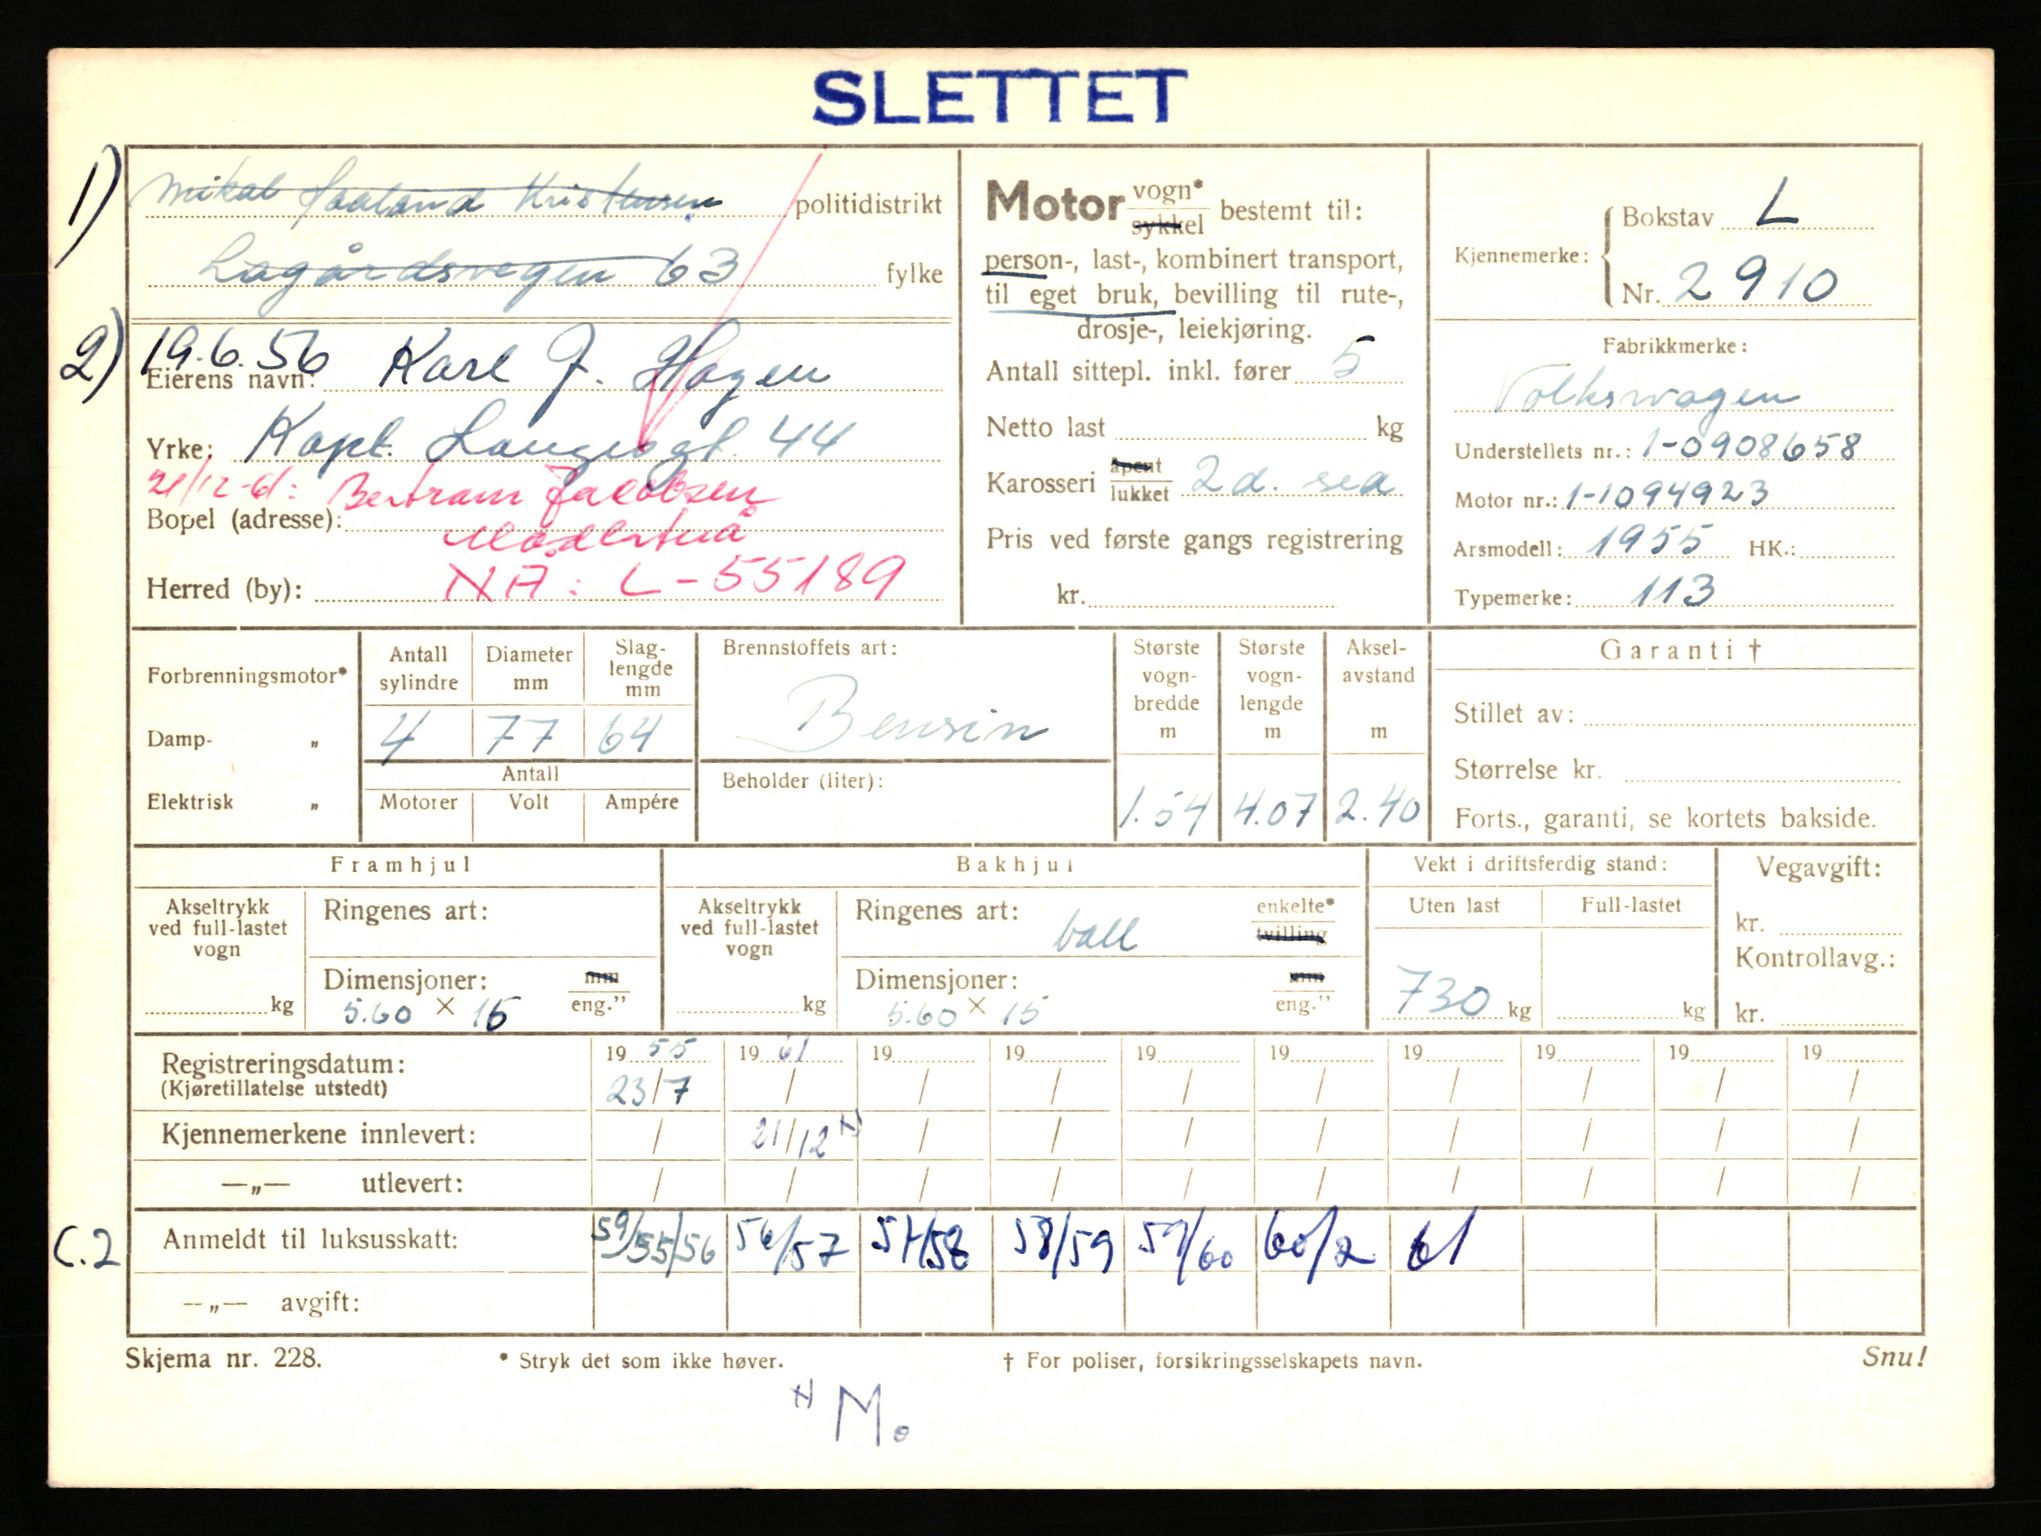 SLETTET
1) Mikal Haaland Kristensen politidistrikt
Lagårdsvegen 63 fylke
2) 19.6.56 Karl J. Hagen
Eierens navn:
Yrke: Kapt. Langesgt. 44
21/12-61: Bertram Jacobsen
Bopel (adresse):
Herred (by): NA: L-55189
Motor vogn* sykkel bestemt til:
person-, last-, kombinert transport,
til eget bruk, bevilling til rute-,
drosje-, leiekjøring.
Antall sittepl. inkl. fører 5
Netto last kg
Karosseri åpent lukket 2 d. sed
Pris ved første gangs registrering
kr.
Kjennemerke: Bokstav L
Nr. 2910
Fabrikkmerke:
Volkswagen
Understellets nr.: 1-0908658
Motor nr.: 1-1094923
Arsmodell: 1955 HK.:
Typemerke: 113
Forbrenningsmotor*
Damp- „
Elektrisk „
Antall sylindre
4
Diameter mm
77
Slag-lengde mm
64
Antall
Motorer Volt Ampére
Brennstoffets art:
Bensin
Beholder (liter):
Største vogn-bredde m
1.54
Største vogn-lengde m
4.07
Aksel-avstand m
2.40
Garanti †
Stillet av:
Størrelse kr.
Forts., garanti, se kortets bakside.
Framhjul
Akseltrykk ved full-lastet vogn
kg
Ringenes art:
Dimensjoner: mm eng.”
5.60 × 15
Bakhjul
Akseltrykk ved full-lastet vogn
kg
Ringenes art: ball enkelte* tvilling
Dimensjoner: mm eng.”
5.60 × 15
Vekt i driftsferdig stand:
Uten last Full-lastet
730 kg kg
Vegavgift:
kr.
Kontrollavg.:
kr.
Registreringsdatum: 19 55 19 61 19 19 19 19 19 19 19 19
(Kjøretillatelse utstedt) 23/7 / / / / / / / / /
Kjennemerkene innlevert: / 21/12 / / / / / / / /
—„— utlevert: / / / / / / / / / /
C.2 Anmeldt til luksusskatt: 59/55/56 56/57 57/58 58/59 59/60 60/2 61
—„— avgift:
Skjema nr. 228. * Stryk det som ikke høver. † For poliser, forsikringsselskapets navn. Snu!
M.